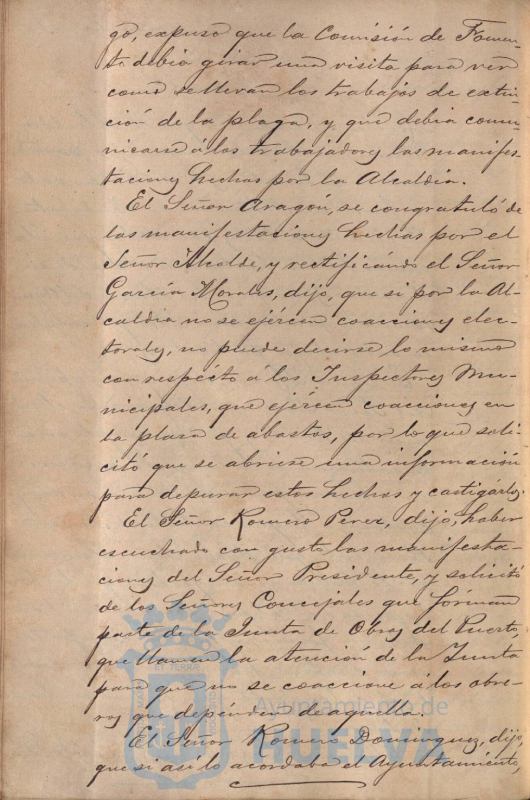 go, expuso que la Comisión de Fomen-
to debía girar una visita para ver
como se llevan los trabajos de extin-
ción de la plaga, y que debía comu-
nicarse á los trabajadores las manifes-
taciones hechas por la Alcaldía.
El Señor Aragón, se congratuló de
las manifestaciones hechas por el
Señor Alcalde, y rectificando el Señor
García Morales, dijo, que si por la Al-
caldia no se ejercen coacciones elec-
torales, no puede decirse lo mismo
con respécto á los Inspectores Mu-
nicipales, que ejércen coacciones en
la plaza de abastos, por lo que soli-
citó que se abriese una información
para depurar estos hechos y castigarlos.
El Señor Romero Perez, dijo, haber
escuchado con gusto las manifesta-
ciones del Señor Presidente, y solicitó
de los Señores Concejales que fórman
parte de la Junta de Obras del Puerto,
que llamen la atención de la Junta
para que no se coaccione á los obre-
ros que depénden de aquella.
El Señor Romero Dominguez, dijo,
que si así lo acordaba el Ayuntamiento,
Ayuntamiento de
HUELVA